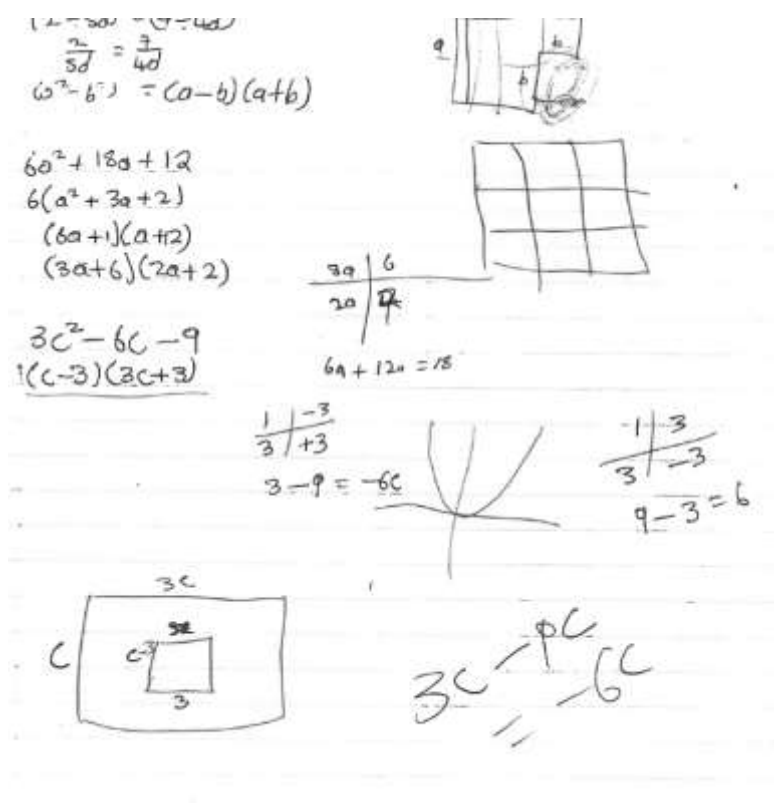 2/5d = 7/4d
(a²-b²) = (a-b)(a+b)
a
b
b
6a² + 18a + 12
6(a² + 3a + 2)
(6a+1)(a+12)
(3a+6)(2a+2)
3a | 6
2a |
6a + 12a = 18
3c² - 6c - 9
(c-3)(3c+3)
1 | -3
3 | +3
3 - 9 = -6c
-1 | 3
3 | -3
9 - 3 = 6
3c
c
c-3
3
3c - 9c
= -6c